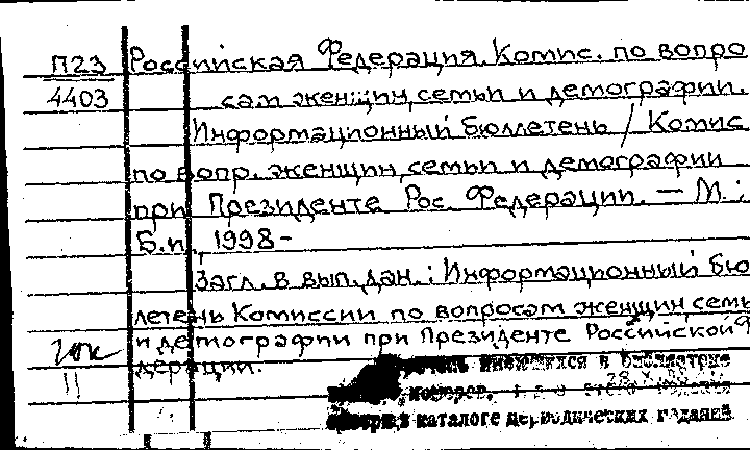 П23 Российская Федерация. Комис. по вопро
4403 сам женщин, семьи и демографии.
Информационный бюллетень / Комис
по вопр. женщин, семьи и демографии
при Президенте Рос. Федерации. — М.:
Б.и., 1998-
Загл. в вып. дан.: Информационный бю
летень Комиссии по вопросам женщин, семь
и демографии при Президенте Российской Ф
дерации.
11 имеющихся в библиотеке
номеров,
в каталоге периодических изданий